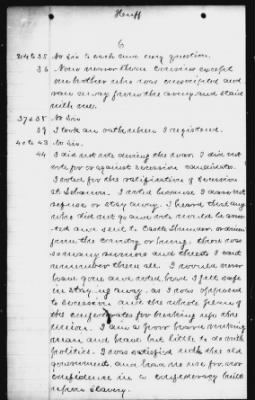 Heuff
6
24 to 35 No Sir to each and every question.
36 None nearer than cousins except
one brother who was conscripted and
ran away from the army and staid
with me.
37 & 38 No Sir
39 I took an oath when I registered.
40 to 43 No Sir.
44 I did not vote during the war. I did not
vote for or against secession candidates.
I voted for the ratification of secession
at Lebanon. I voted because I dare not
refuse or stay away. I heard that any
who did not go and vote would be arres-
ted and sent to Castle Thunder or driven
from the country or hung. there was
so many rumors and threats I cant
remember them all. I would never
have gone and voted had I felt safe
in staying away. as I was opposed
to secession and the whole plan of
the confederates for breaking up the
Union. I am a poor hard working
man and have but little to do with
politics. I was satisfied with the old
government and have no use for nor
confidence in a confederacy built
upon slavery.